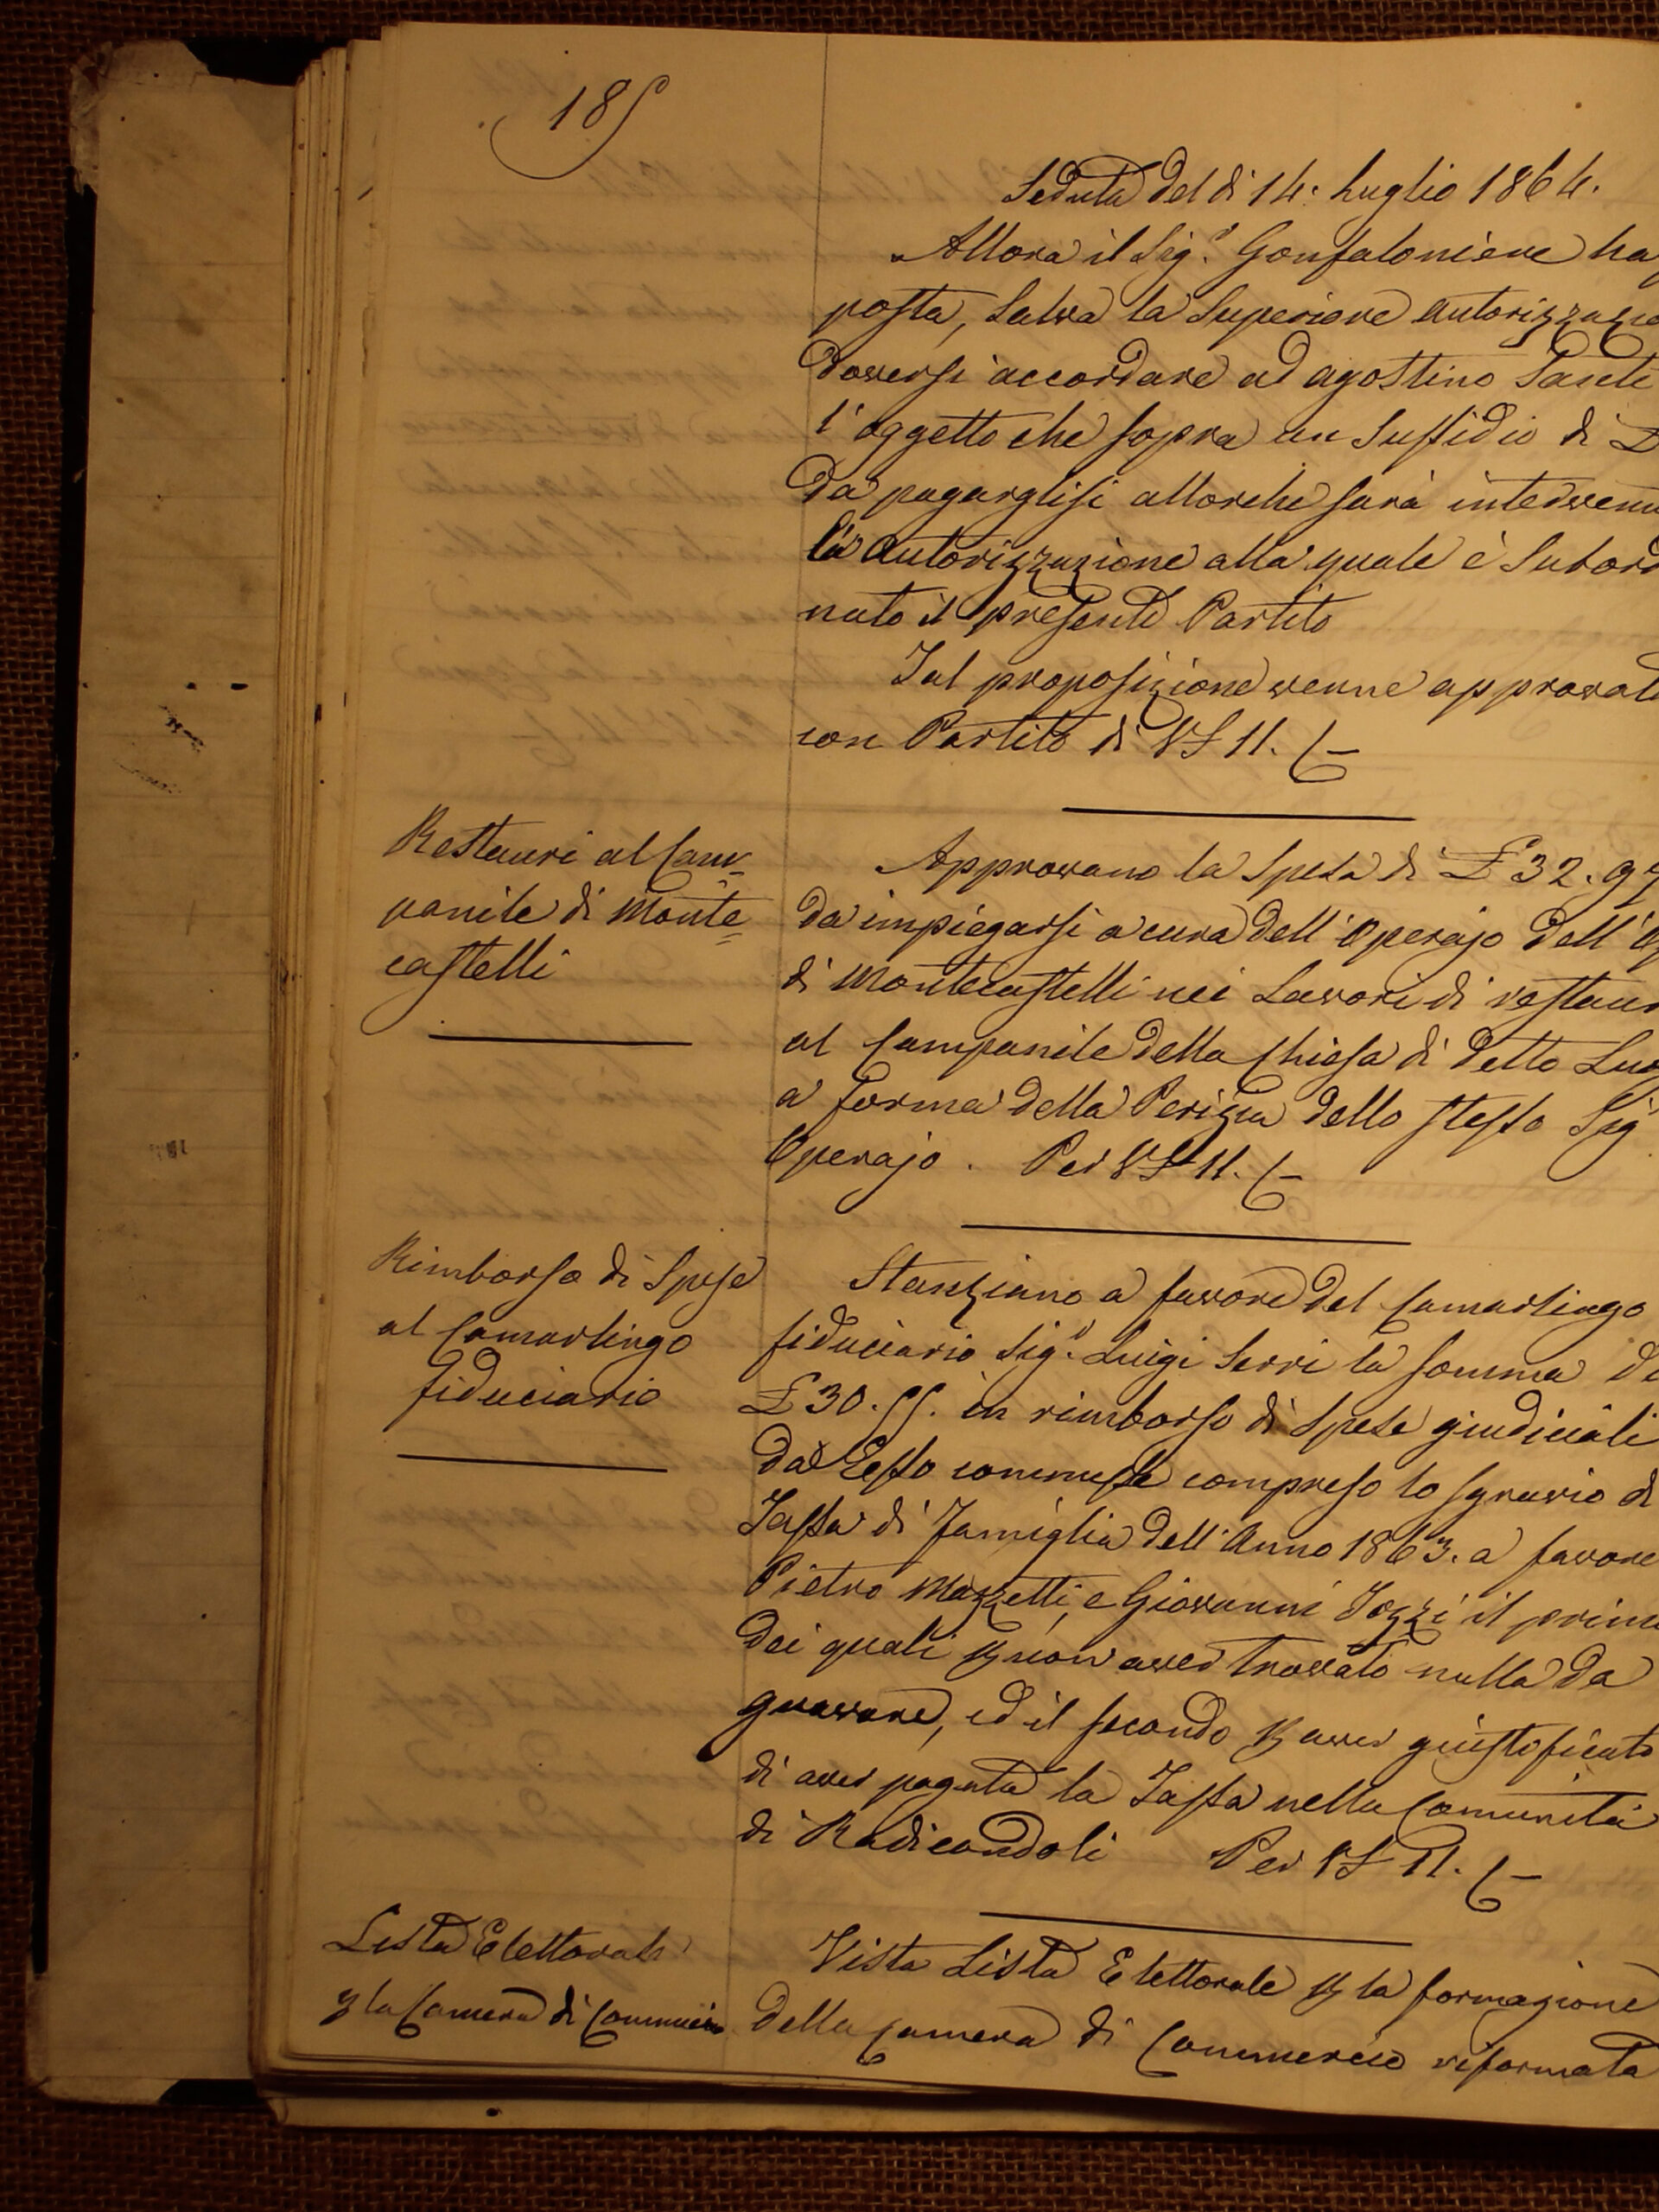 185
Seduta del dì 14. Luglio 1864.
Allora il Sig.r Gonfaloniere ha
posta, Salva la Superiore autorizzazio
doversi accordare ad agostino Santi
l'oggetto che sopra un Sussidio di £
da pagarglisi allorché sarà intervenu
la autorizzazione alla quale è Subord
nato il presente Partito
Tal proposizione venne approvata
con Partito di VF 11. C–
Restauri al Cam-
panile di Monte=
castelli
Approvano la Spesa di £ 32. 97
da impiegarsi a cura dell'Operajo dell'Op
di Montecastelli nei Lavori di restaur
al Campanile della Chiesa di detto Luo
a forma della Perizia dello stesso Sig
Operajo. Per VF 11. C–
Rimborso di Spese
al Camarlingo
fiduciario
Stanziano a favore del Camarlingo
fiduciario Sig.r Luigi Serri la somma di
£ 30. 55. in rimborso di Spese giudiciali
da Esso commesse compreso lo sgravio di
Tassa di Famiglia dell'Anno 1863. a favore
Pietro Mazzetti, e Giovanni Tozzi il prim
dei quali p non aver trovato nulla da
gravare, ed il secondo p aver giustoficato
di aver pagata la Tassa nella Comunità
di Radicondoli Per VF 11. C–
Lista Elettorale
p la Camera di Commercio
Vista Lista Elettorale p la formazione
della Camera di Commercio riformata